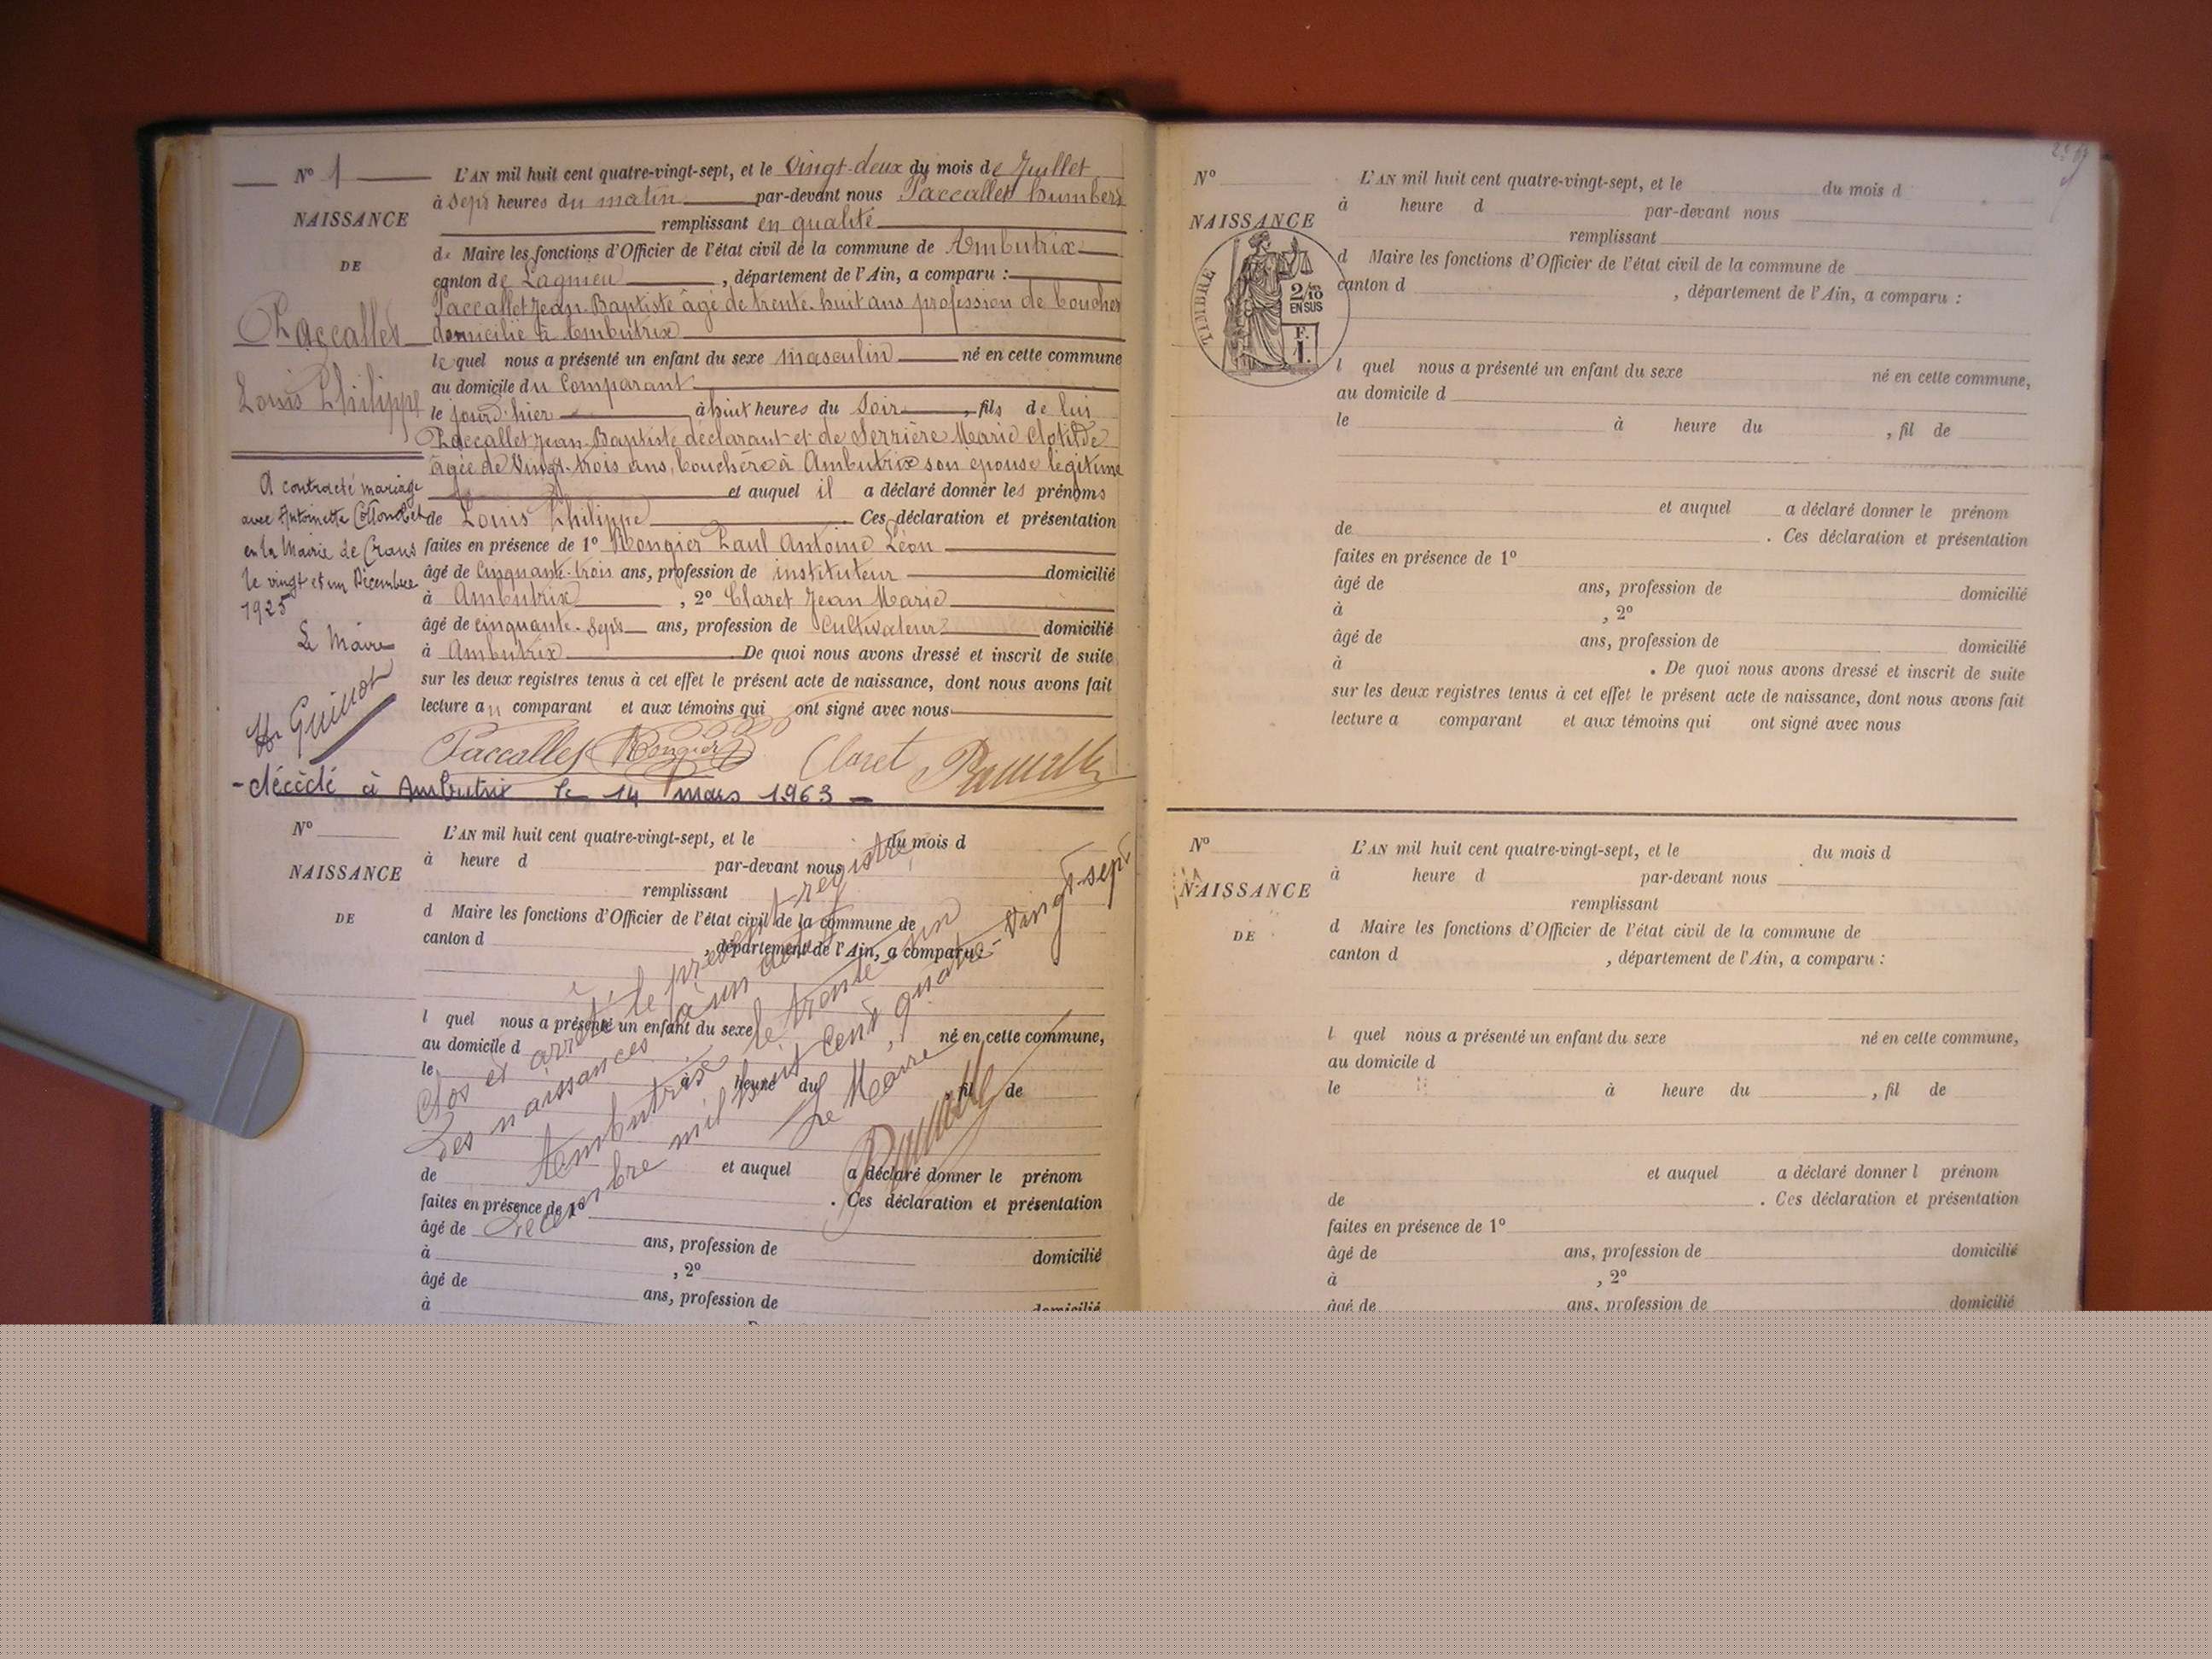 N° 1
NAISSANCE
DE
Paccallet
Louis Philippe
A contracté mariage
avec Antoinette
en la Mairie de Crans
le vingt et un Décembre
1925
Le Maire
Guinot
L'AN mil huit cent quatre-vingt-sept, et le vingt-deux du mois de Juillet
à sept heures du matin par-devant nous Paccallet humbert
remplissant en qualité
de Maire les fonctions d'Officier de l'état civil de la commune de Ambutrix
canton de Lagnieu, département de l'Ain, a comparu :
Paccallet Jean-Baptiste âgé de trente-huit ans profession de boucher
domicilié à Ambutrix
lequel nous a présenté un enfant du sexe masculin né en cette commune
au domicile du Comparant
le jourd'hier à huit heures du Soir, fils de lui
Paccallet Jean-Baptiste déclarant et de Serrière Marie Clotilde
âgée de Vingt-trois ans, bouchère à Ambutrix son épouse légitime
et auquel il a déclaré donner les prénoms
de Louis Philippe. Ces déclaration et présentation
faites en présence de 1° Rongier Paul Antoine Léon
âgé de Cinquante-trois ans, profession de instituteur domicilié
à Ambutrix, 2° Claret Jean Marie
âgé de cinquante-sept ans, profession de Cultivateur domicilié
à Ambutrix. De quoi nous avons dressé et inscrit de suite
sur les deux registres tenus à cet effet le présent acte de naissance, dont nous avons fait
lecture au comparant et aux témoins qui ont signé avec nous
Paccallet Rongier Claret
- décédé à Ambutrix le 14 mars 1963 -
N°
NAISSANCE
DE
L'AN mil huit cent quatre-vingt-sept, et le du mois d
à heure d par-devant nous
remplissant
d Maire les fonctions d'Officier de l'état civil de la commune de
canton d , département de l'Ain, a comparu :
l quel nous a présenté un enfant du sexe né en cette commune,
au domicile d
le à heure du , fil de
et auquel a déclaré donner le prénom
de . Ces déclaration et présentation
faites en présence de 1°
âgé de ans, profession de domicilié
à , 2°
âgé de ans, profession de domicilié
à
Clos et arrêté le présent registre
des naissances à un acte
Ambutrix le trente un
Décembre mil huit cent quatre-vingt-sept
Le Maire
N°
NAISSANCE
TIMBRE
2/10
EN SUS
F.
1.
L'AN mil huit cent quatre-vingt-sept, et le du mois d
à heure d par-devant nous
remplissant
d Maire les fonctions d'Officier de l'état civil de la commune de
canton d , département de l'Ain, a comparu :
l quel nous a présenté un enfant du sexe né en cette commune,
au domicile d
le à heure du , fil de
et auquel a déclaré donner le prénom
de . Ces déclaration et présentation
faites en présence de 1°
âgé de ans, profession de domicilié
à , 2°
âgé de ans, profession de domicilié
à . De quoi nous avons dressé et inscrit de suite
sur les deux registres tenus à cet effet le présent acte de naissance, dont nous avons fait
lecture a comparant et aux témoins qui ont signé avec nous
N°
NAISSANCE
DE
L'AN mil huit cent quatre-vingt-sept, et le du mois d
à heure d par-devant nous
remplissant
d Maire les fonctions d'Officier de l'état civil de la commune de
canton d , département de l'Ain, a comparu :
l quel nous a présenté un enfant du sexe né en cette commune,
au domicile d
le à heure du , fil de
et auquel a déclaré donner l prénom
de . Ces déclaration et présentation
faites en présence de 1°
âgé de ans, profession de domicilié
à , 2°
âgé de ans, profession de domicilié